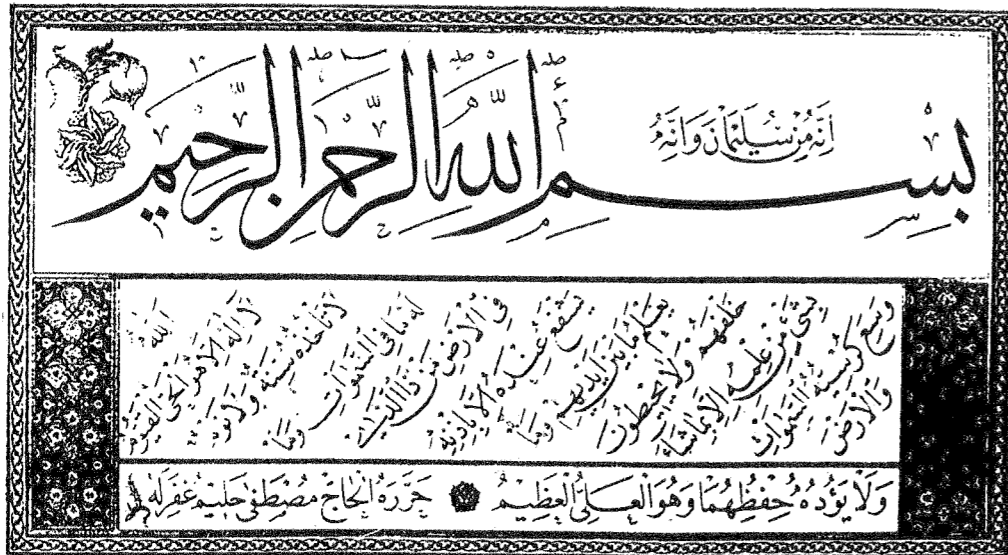 انه من سليمان وانه
بسم الله الرحمن الرحيم
الله
لا اله الا هو الحي القيوم
لا تأخذه سنة ولا نوم
له ما في السموات وما
في الارض من ذا الذي
يشفع عنده الا باذنه
يعلم ما بين ايديهم وما
خلفهم ولا يحيطون
بشئ من علمه الا بما شاء
وسع كرسيه السموات
والارض
ولا يؤده حفظهما وهو العلي العظيم حرره الحاج مصطفى حليم غفر له